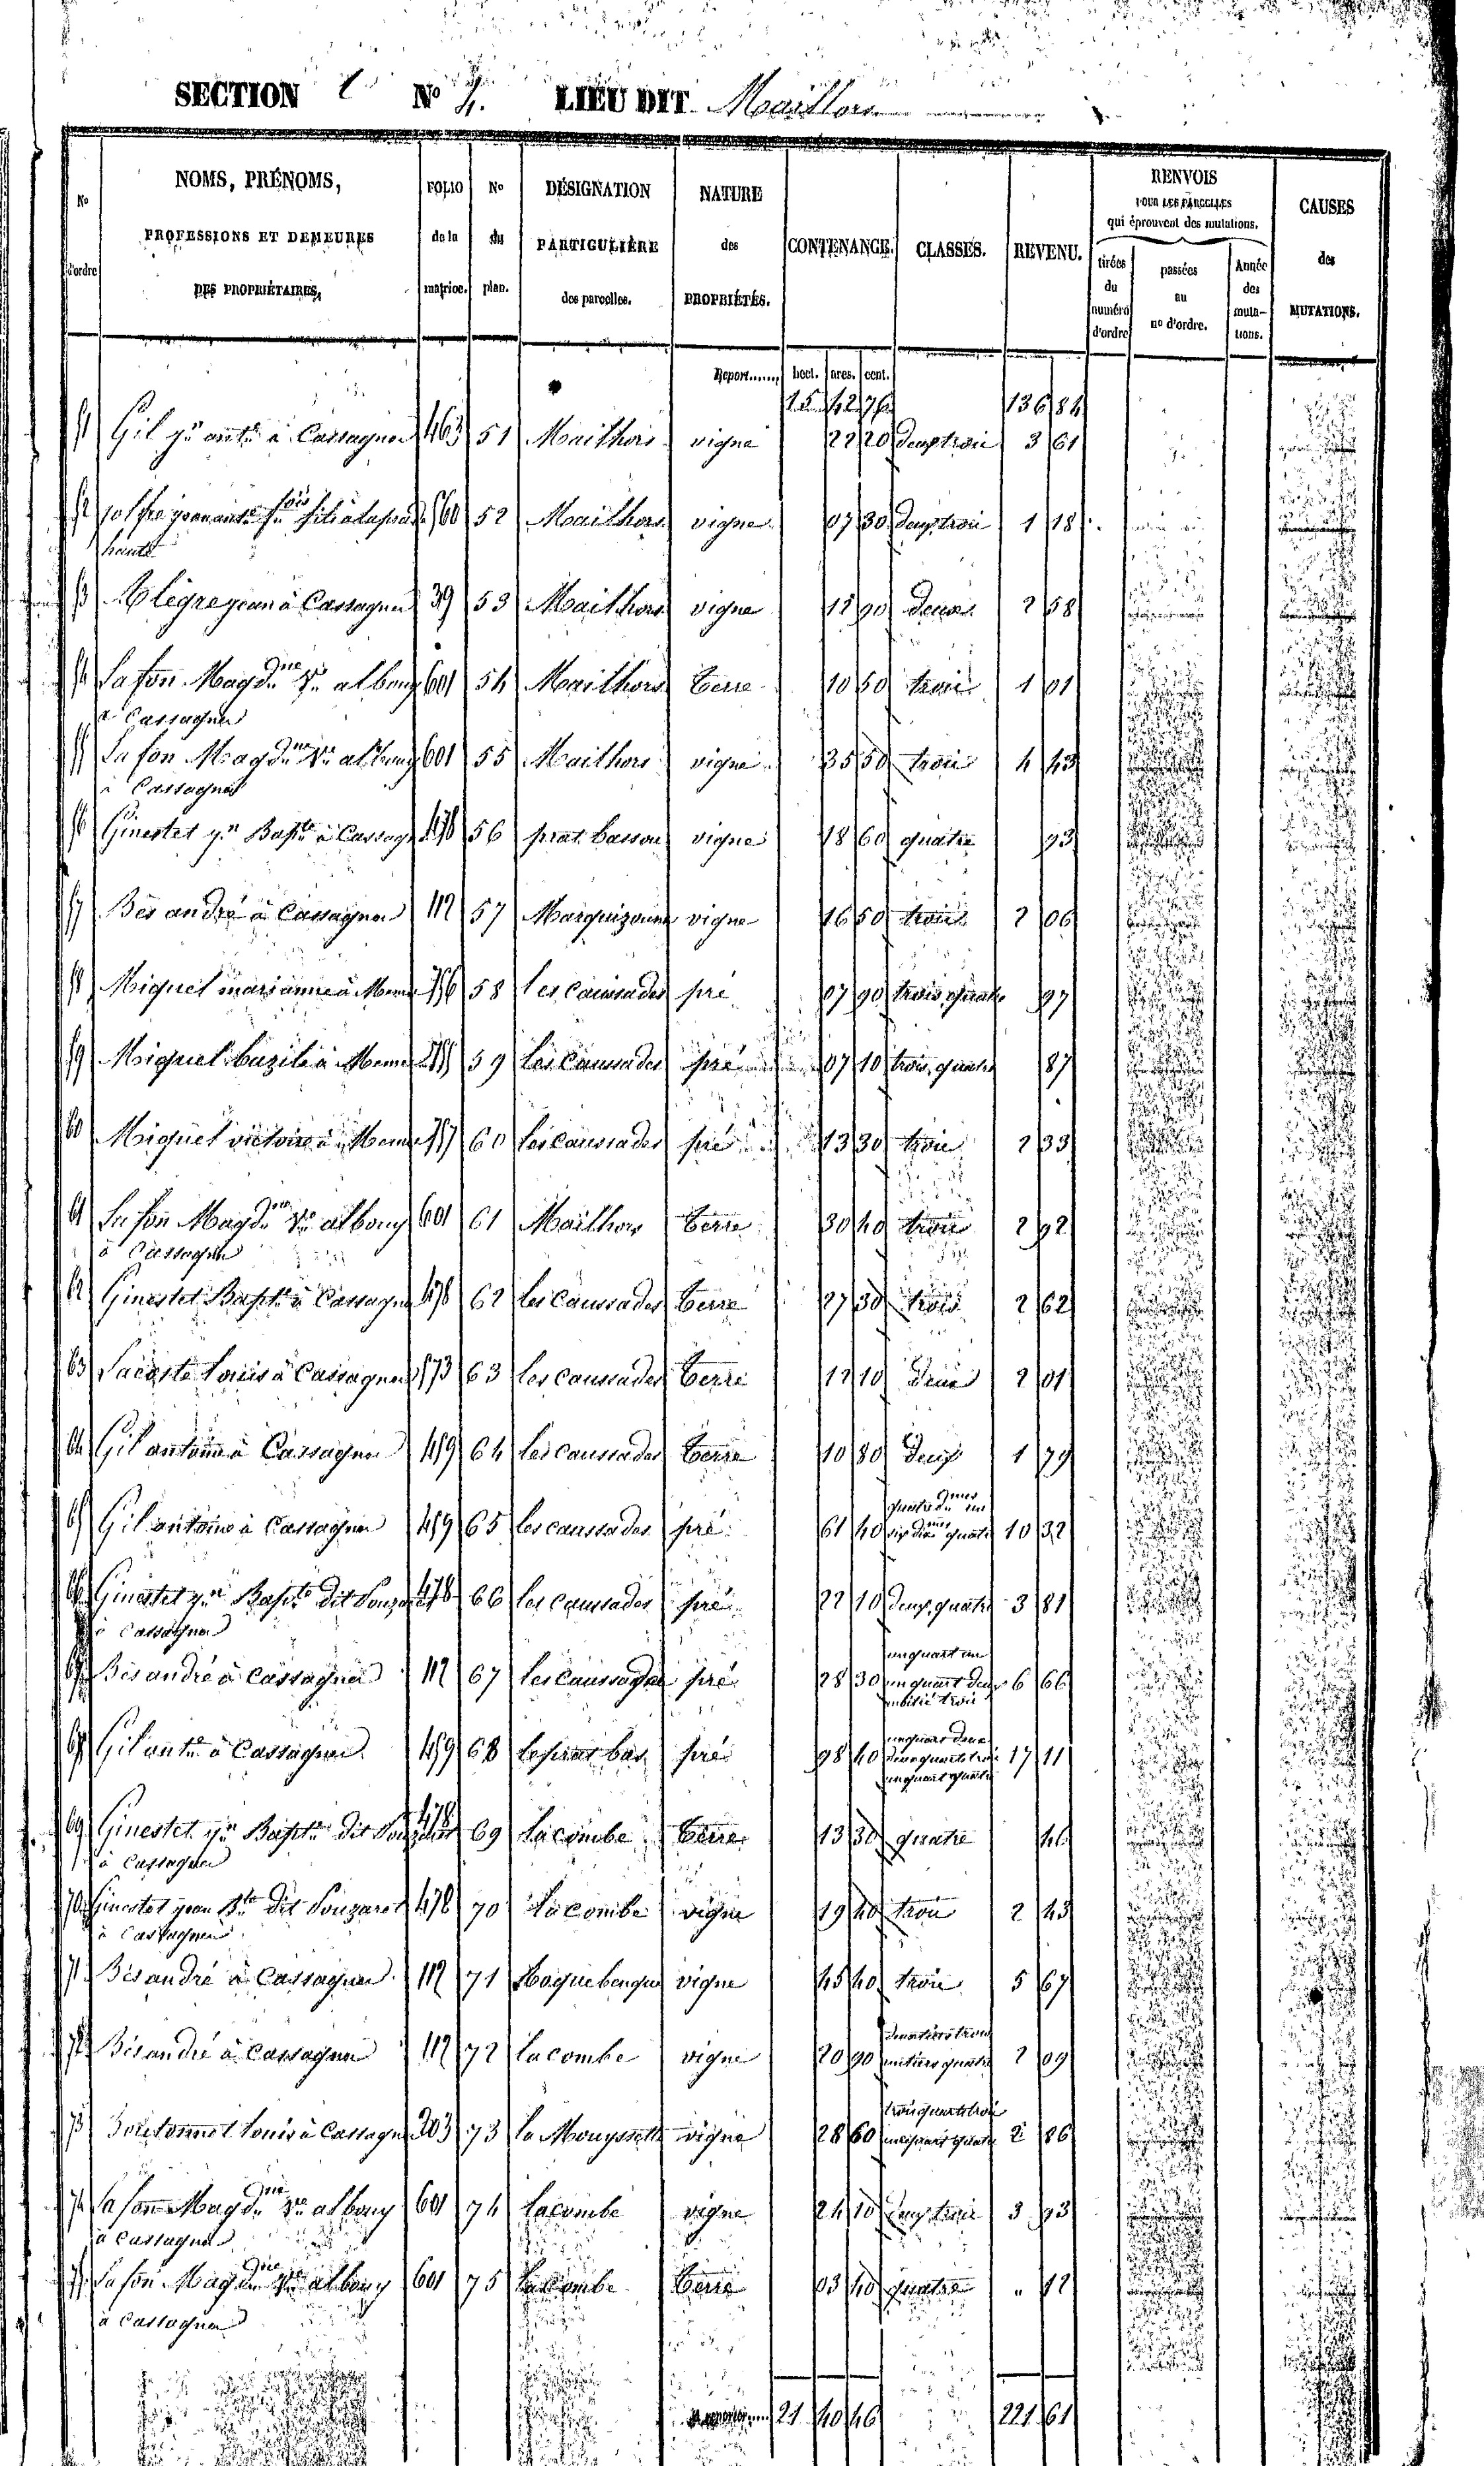 SECTION C No 4. LIEU DIT Maillors
No d'ordre
NOMS, PRÉNOMS, PROFESSIONS ET DEMEURES DES PROPRIÉTAIRES,
FOLIO de la matrice.
No du plan.
DÉSIGNATION PARTICULIÈRE des parcelles.
NATURE des PROPRIÉTÉS.
CONTENANCE.
CLASSES.
REVENU.
RENVOIS POUR LES PARCELLES qui éprouvent des mutations.
tirées du numéro d'ordre
passées au no d'ordre.
Année des mutations.
CAUSES des MUTATIONS.
Report...... hect. ares. cent.
15 42 76 136 84
51 Gil jn ante à Cassagnes 463 51 Maithors vigne 22 20 deux trois 3 61
52 560 52 Maithors vigne 07 30 deux trois 1 18
haute
53 Alégre jean à Cassagnes 39 53 Maithors vigne 12 90 deux 2 58
54 Lafon Magdne Ve albouy 601 54 Maithors terre 10 50 trois 1 01
à Cassagnes
55 Lafon Magdne Ve albouy 601 55 Maithors vigne 35 50 trois 4 43
à Cassagnes
56 Ginestet jn Bapte à Cassag 478 56 prat bassou vigne 18 60 quatre 93
57 Bès andré à Cassagnes 112 57 Marquizoune vigne 16 50 trois 2 06
58 Miquel marianne à 756 58 les caussades pré 07 90 trois, quatre 97
59 Miquel bazile à 755 59 les caussades pré 07 10 trois, quatre 87
60 Miquel victoire à 757 60 les caussades pré 13 30 trois 2 33
61 Lafon Magdne Ve albouy 601 61 Maithors terre 30 40 trois 2 92
à Cassagnes
62 Ginestet Bapte à Cassagnes 478 62 les caussades terre 27 30 trois 2 62
63 Lacoste Louis à Cassagnes 573 63 les caussades terre 12 10 deux 2 01
64 Gil antoine à Cassagnes 459 64 les caussades terre 10 80 deux 1 79
65 Gil antoine à Cassagnes 459 65 les caussades pré 61 40 quatre dmes un six dmes quatre 10 32
66 Ginestet jn Bapte dit Pouzaret 478 66 les caussades pré 22 10 deux, quatre 3 81
à Cassagnes
67 Bès andré à Cassagnes 112 67 les caussades pré 28 30 un quart un un quart deux moitié trois 6 66
68 Gil ante à Cassagnes 459 68 le prat bas pré 98 40 un quart deux deux quarts trois un quart quatre 17 11
69 Ginestet jn Bapte dit Pouzaret 478 69 lacombe terre 13 30 quatre 46
à Cassagnes
70 Ginestet jean Bte dit Pouzaret 478 70 lacombe vigne 19 40 trois 2 43
à Cassagnes
71 Bès andré à Cassagnes 112 71 Roquebenque vigne 45 40 trois 5 67
72 Bès andré à Cassagnes 112 72 lacombe vigne 20 90 deux tiers trois un tiers quatre 2 09
73 louis à Cassagnes 303 73 la Mouyssette vigne 28 60 trois quarts trois un quart quatre 2 86
74 Lafon Magdne Ve albouy 601 74 lacombe vigne 24 10 deux, trois 3 93
à Cassagnes
75 Lafon Magdne Ve albouy 601 75 lacombe terre 03 40 quatre " 12
à Cassagnes
A reporter..... 21 40 46 221 61